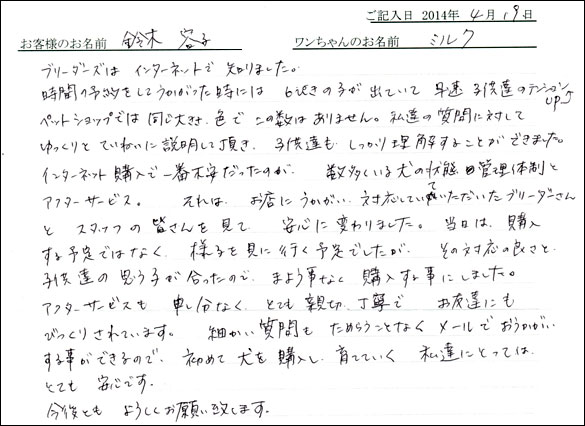 ご記入日 2014年 4月 19日
お客様のお名前 鈴木 容子 ワンちゃんのお名前 ミルク
ブリーダーズは インターネットで 知りました。
時間の予約をしてうかがった時には 6ぴきの子が出ていて 早速 子供達のテンションUP↑
ペットショップでは 同じ大きさ、色で この数は ありません。私達の質問に対して
ゆっくりと ていねいに説明して頂き、子供達も しっかり理解することが できました。
インターネット購入で一番不安だったのが、 数多くいる犬の状態 管理体制と
アフターサービス。 それは、お店にうかがい、対応していていただいたブリーダーさん
と スタッフの皆さんを見て、安心に変わりました。 当日は、購入
する予定ではなく、様子を見に行く予定でしたが、 その対応の良さと、
子供達の 思う子が合ったので、まよう事なく 購入する事にしました。
アフターサービスも 申し分なく、とても 親切、丁寧で お友達にも
びっくりされています。 細かい質問も ためらうことなく メールでおうかがい
する事ができるので、初めて 犬を購入し、育てていく 私達にとっては、
とても 安心です。
今後とも よろしくお願い致します。